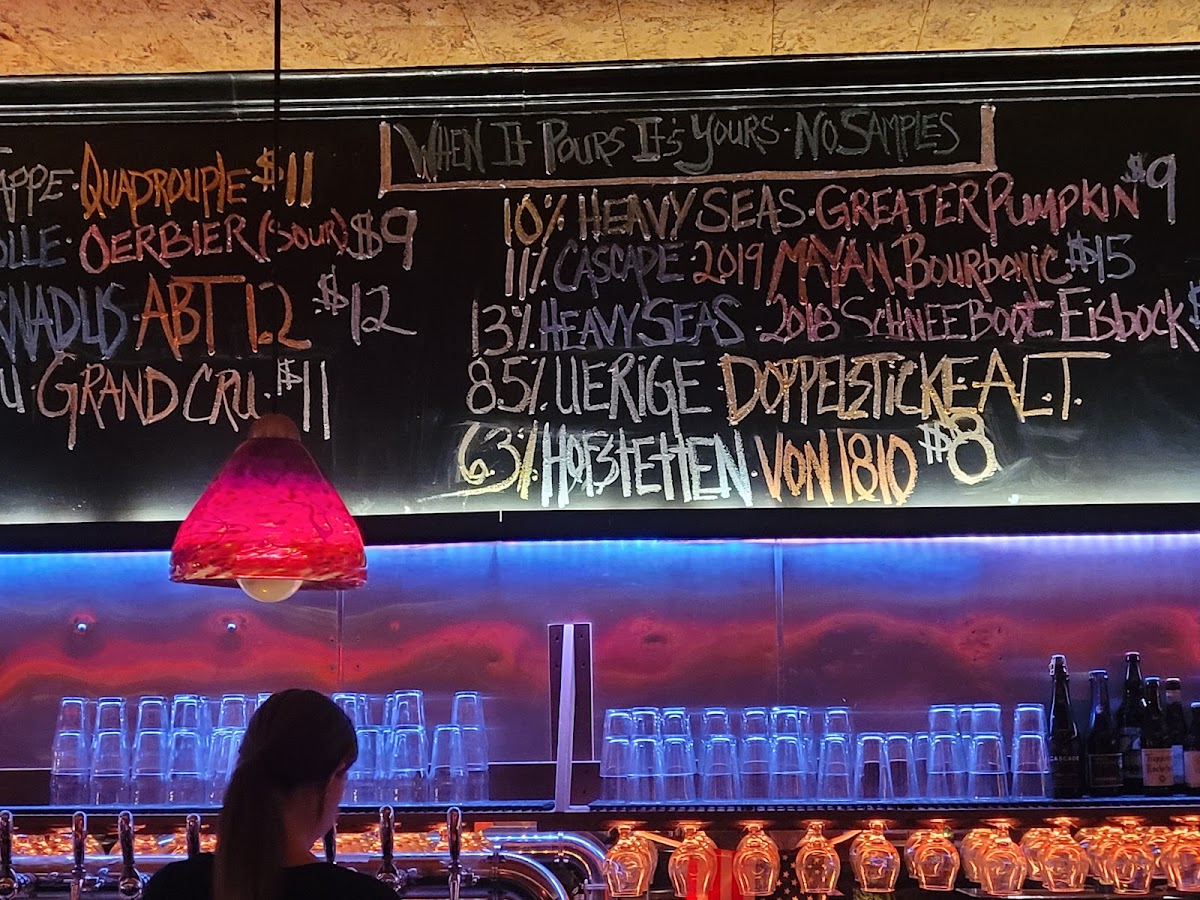 APPE · QUADROUPLE $11
OLLE · OERBIER (SOUR) $9
RNADUS · ABT 12 $12
U · GRAND CRU · $11
WHEN IT POURS IT'S YOURS · NO SAMPLES
10% HEAVY SEAS · GREATER PUMPKIN $9
11% CASCADE · 2019 MAYAN BOURBONIC $15
13% HEAVY SEAS · 2018 SCHNEEBOOT EISBOCK $
8.5% UERIGE · DOPPELSTICKE · ALT.
6.3% HOFSTETTEN · VON 1810 $8
CASCADE